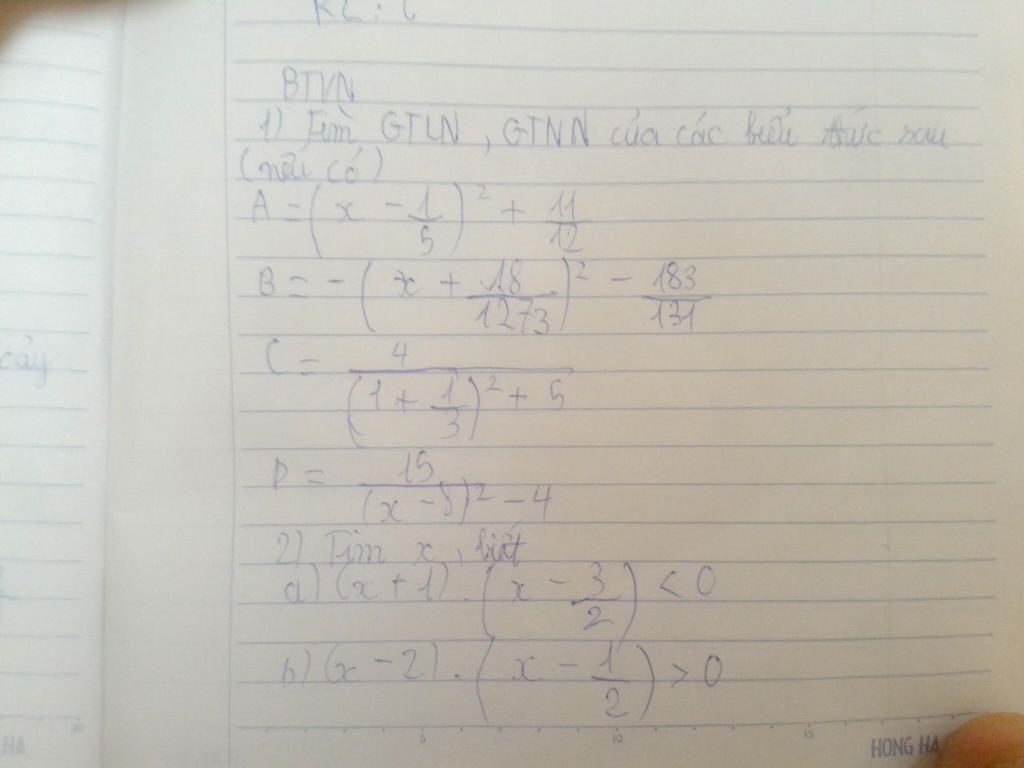 BTVN
1) Tìm GTLN, GTNN của các biểu thức sau
(nếu có)
A = (x - 1/5)² + 11/12
B = - (x + 18/1273)² - 183/131
C = 4/((1 + 1/3)² + 5)
D = 15/((x - 8)² - 4)
2) Tìm x, biết
a) (x + 1) . (x - 3/2) < 0
b) (x - 2) . (x - 1/2) > 0
cây
5 10 15
HONG HA
HA